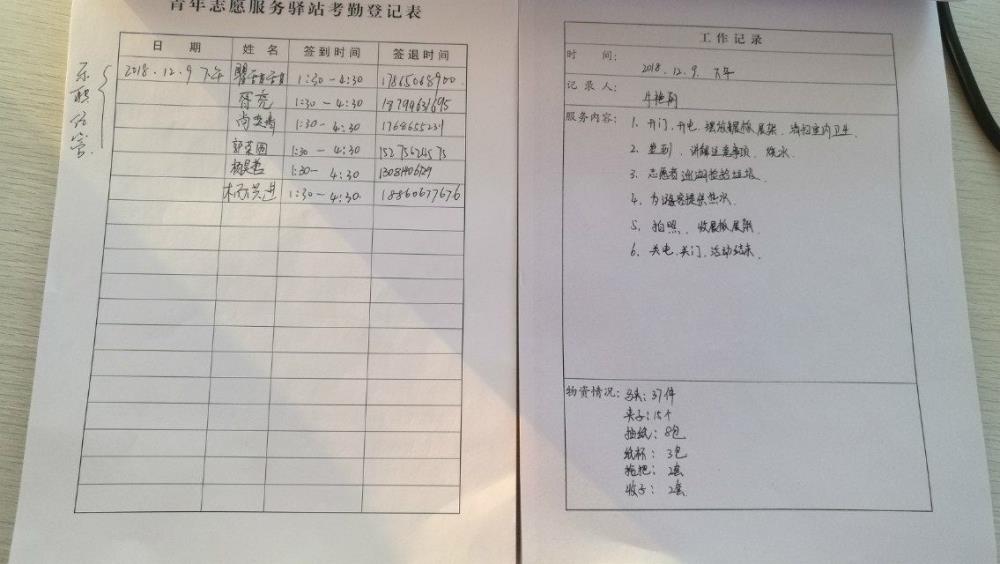 青年志愿服务驿站考勤登记表
日 期 姓 名 签到时间 签退时间
2018.12.9 下午 1:30-4:30 17865068900
1:30-4:30
1:30-4:30
郭 1:30-4:30 15275624575
1:30-4:30
1:30-4:30 18860677676
工作记录
时 间:
2018.12.9. 下午
记录人:
牛艳
服务内容: 1. 开门、开电、摆放展板、展架、清扫室内卫生.
2. 签到、讲解注意事项、烧水.
3. 志愿者巡湖捡拾垃圾.
4. 为游客提供热水.
5. 拍照、收展板、展架.
6. 关电、关门、活动结束.
物资情况: 马夹: 37件
夹子: 15个
抽纸: 8包
纸杯: 3包
拖把: 2套
2套